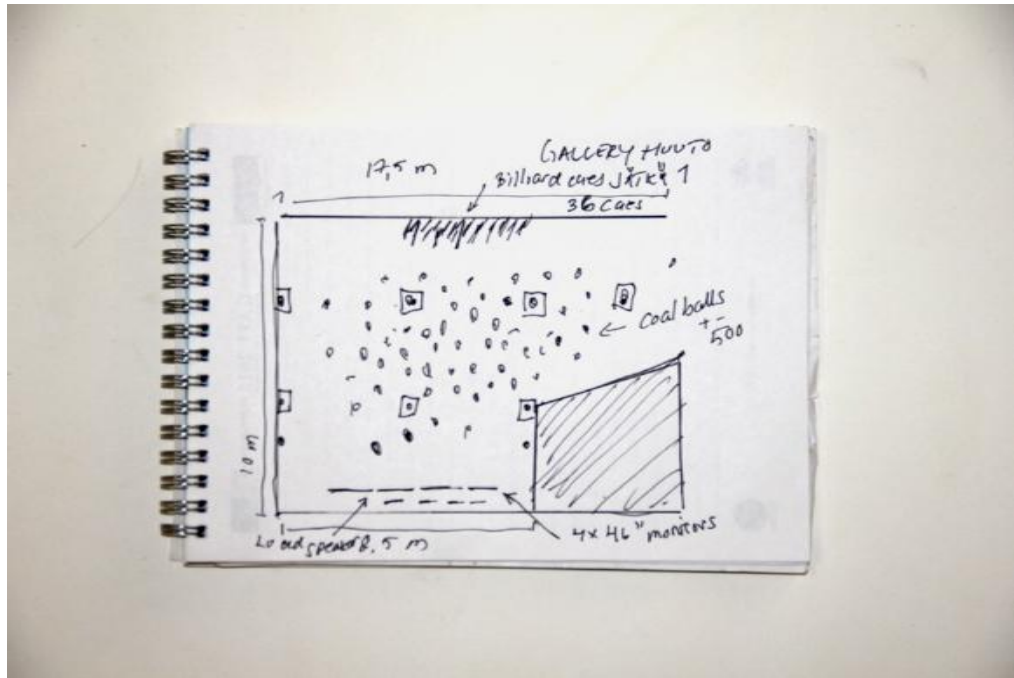 GALLERY HUUTO
17,5 m
Billiard cues JÄTKÄ 1
36 cues
coal balls
+-
500
10 m
Loudspeakers
8,5 m
4x46" monitors